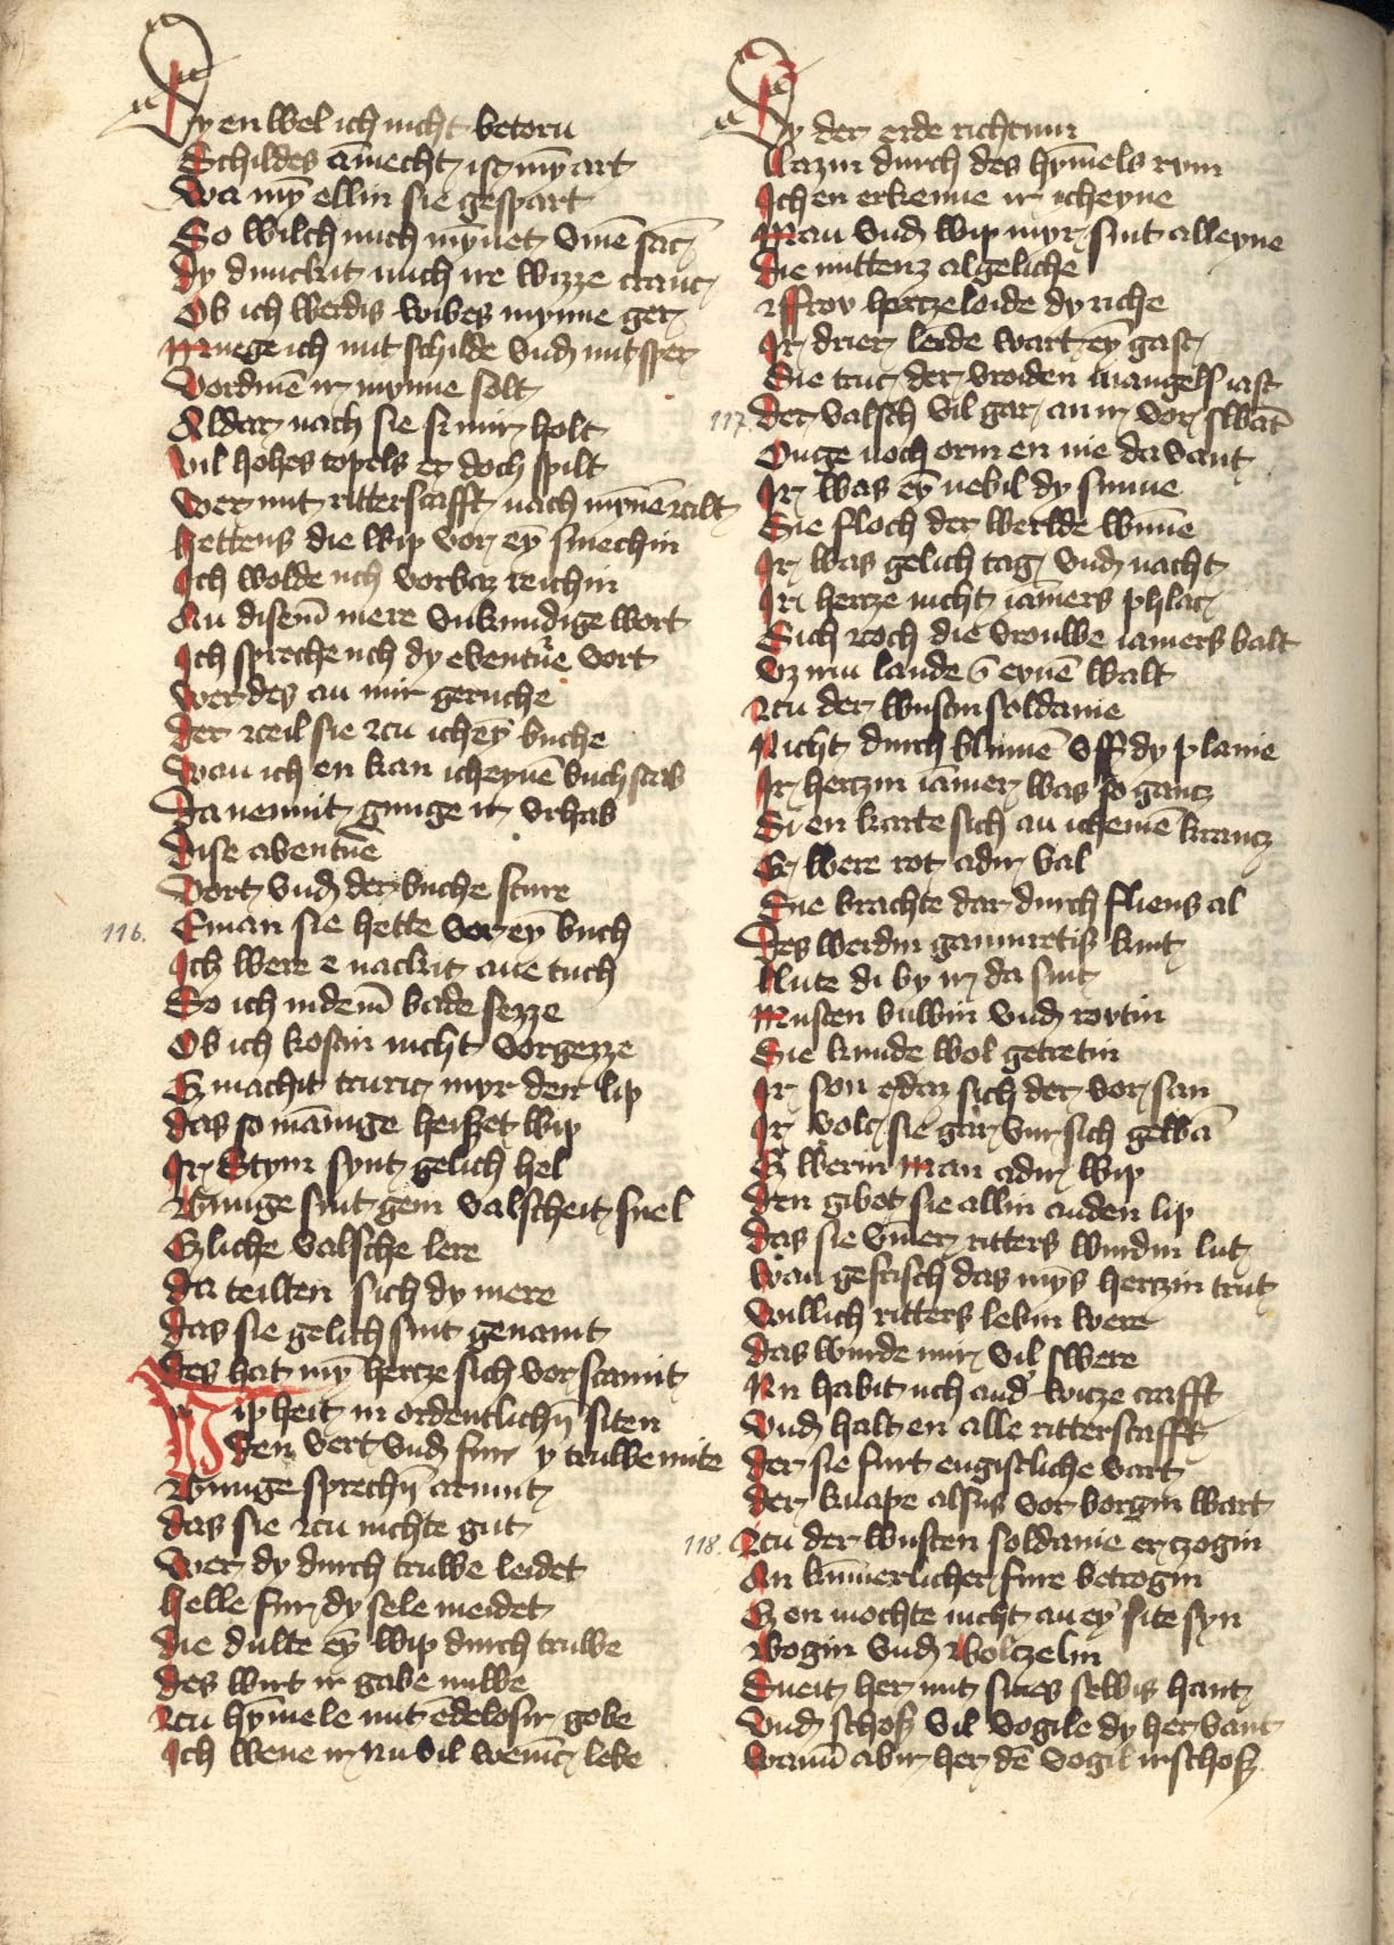 Dy en wel ich nicht betoru
Schildes āmecht ist mȳ art
Wa mȳ ellin sie gespart
So wilch mich mȳnet vmē sāc
dy dunckit mich ire wizze cranc
Ob ich werdis wibes mynne ger
Muege ich mit schilde vnd mit sper
Vordinē ir mynne solt
Aldar nach sie si mir holt
vil hohes topels er doch spilt
wer mit ritterscafft nach mȳnē zcilt
hettens die wip vor eȳ smechin
Ich wolde uch vorbaz reichin
An disem̄ mere vnkundige wort
Ich spreche uch dy eventūe vort
wer des an mir geruche
der zceil sie zcu icheȳ buche
wan ich en kan icheynē buch stab
Da nemmit gnuge ir vrhab
dise aventūe
Vort vnd der buche sture
116. Eman sie hette vor eȳ buch
Ich were e nackit ane tuch
So ich indem̄ bade sezze
Ob ich kostin nicht vorgezze
Ez machit truric myr den lip
das so māninge heisset wip
Ir stym synt gelich hel
Gnuge sint gein valscheit snel
Ezliche valsche lere
da teilten sich dy mere
das sie gelich sint genamt
des hat mȳ hertze sich vor scamit
Wipheit in ordentlichn̄ siten
den vert vnd fur y truwe mite
Gnuge sprechn̄ armut
das sie zcu nichte gut
wer dy durch truwe leidet
helle fur dy sele meidet
die dulte eȳ wip durch truwe
des wirt ir gabe nuwe
zcu hȳmele mit ēdelosir gebe
Ich wene ir nu vil wenīc lebe
Dy der erde richtum
liezin durch des hȳmels rum
Ich en erkenne ir icheyne
Man vnd wip myr sint alleyne
die mittenz algeliche
vffrov hertzeloide dy riche
Ir drier leide wart eȳ gast
Sie truc der vroiden mangels last
117. der valsch vil gar an ir vor swāt
Ouge noch orin en nie da vant
Ir was eȳ nebil dy sunne
Sie floch der werlde wūne
Ir was gelich tag vnd nacht
Ir hertze nicht iāmers phlac
Sich zcoch die vrouwe iamers balt
vz irm lande ī eynē walt
zcu der wustin soldanie
Nicht durch blumē vff dy planie
Ir hertzin iāmer was so gantz
Si en karte sich an icheinē krantz
Er were rot adir val
Sie brachte dar durch fliens al
Des werdin gammretis kint
lute di by ir da sint
Musten buwin vnd roytin
Sie kunde wol getretin
Ir son e daz sich der vor san
Ir volc sie gar vur sich gewā
Ez werin man adir wip
den gibot sie allin anden lip
das sie vm̄er ritters wurdin lut
wan gefrisch das mȳs hertzin trut
willich ritters lebin were
das wurde mir vil swere
Nu habit uch and' witze crafft
vnd halt en alle ritterscafft
der sie furt engistliche vart
der knape alsus vor borgin wart
118. zcu der wusten soldanie ertzogin
An kūmerlicher fure betrogin
Ez en mochte nicht an eȳ site syn
Bogin vnd boltzelin
Sneit her mit sines selbis hant
Vnd schoß vil vogile dy her vant
wann̄ abir her dē vogil irschoß